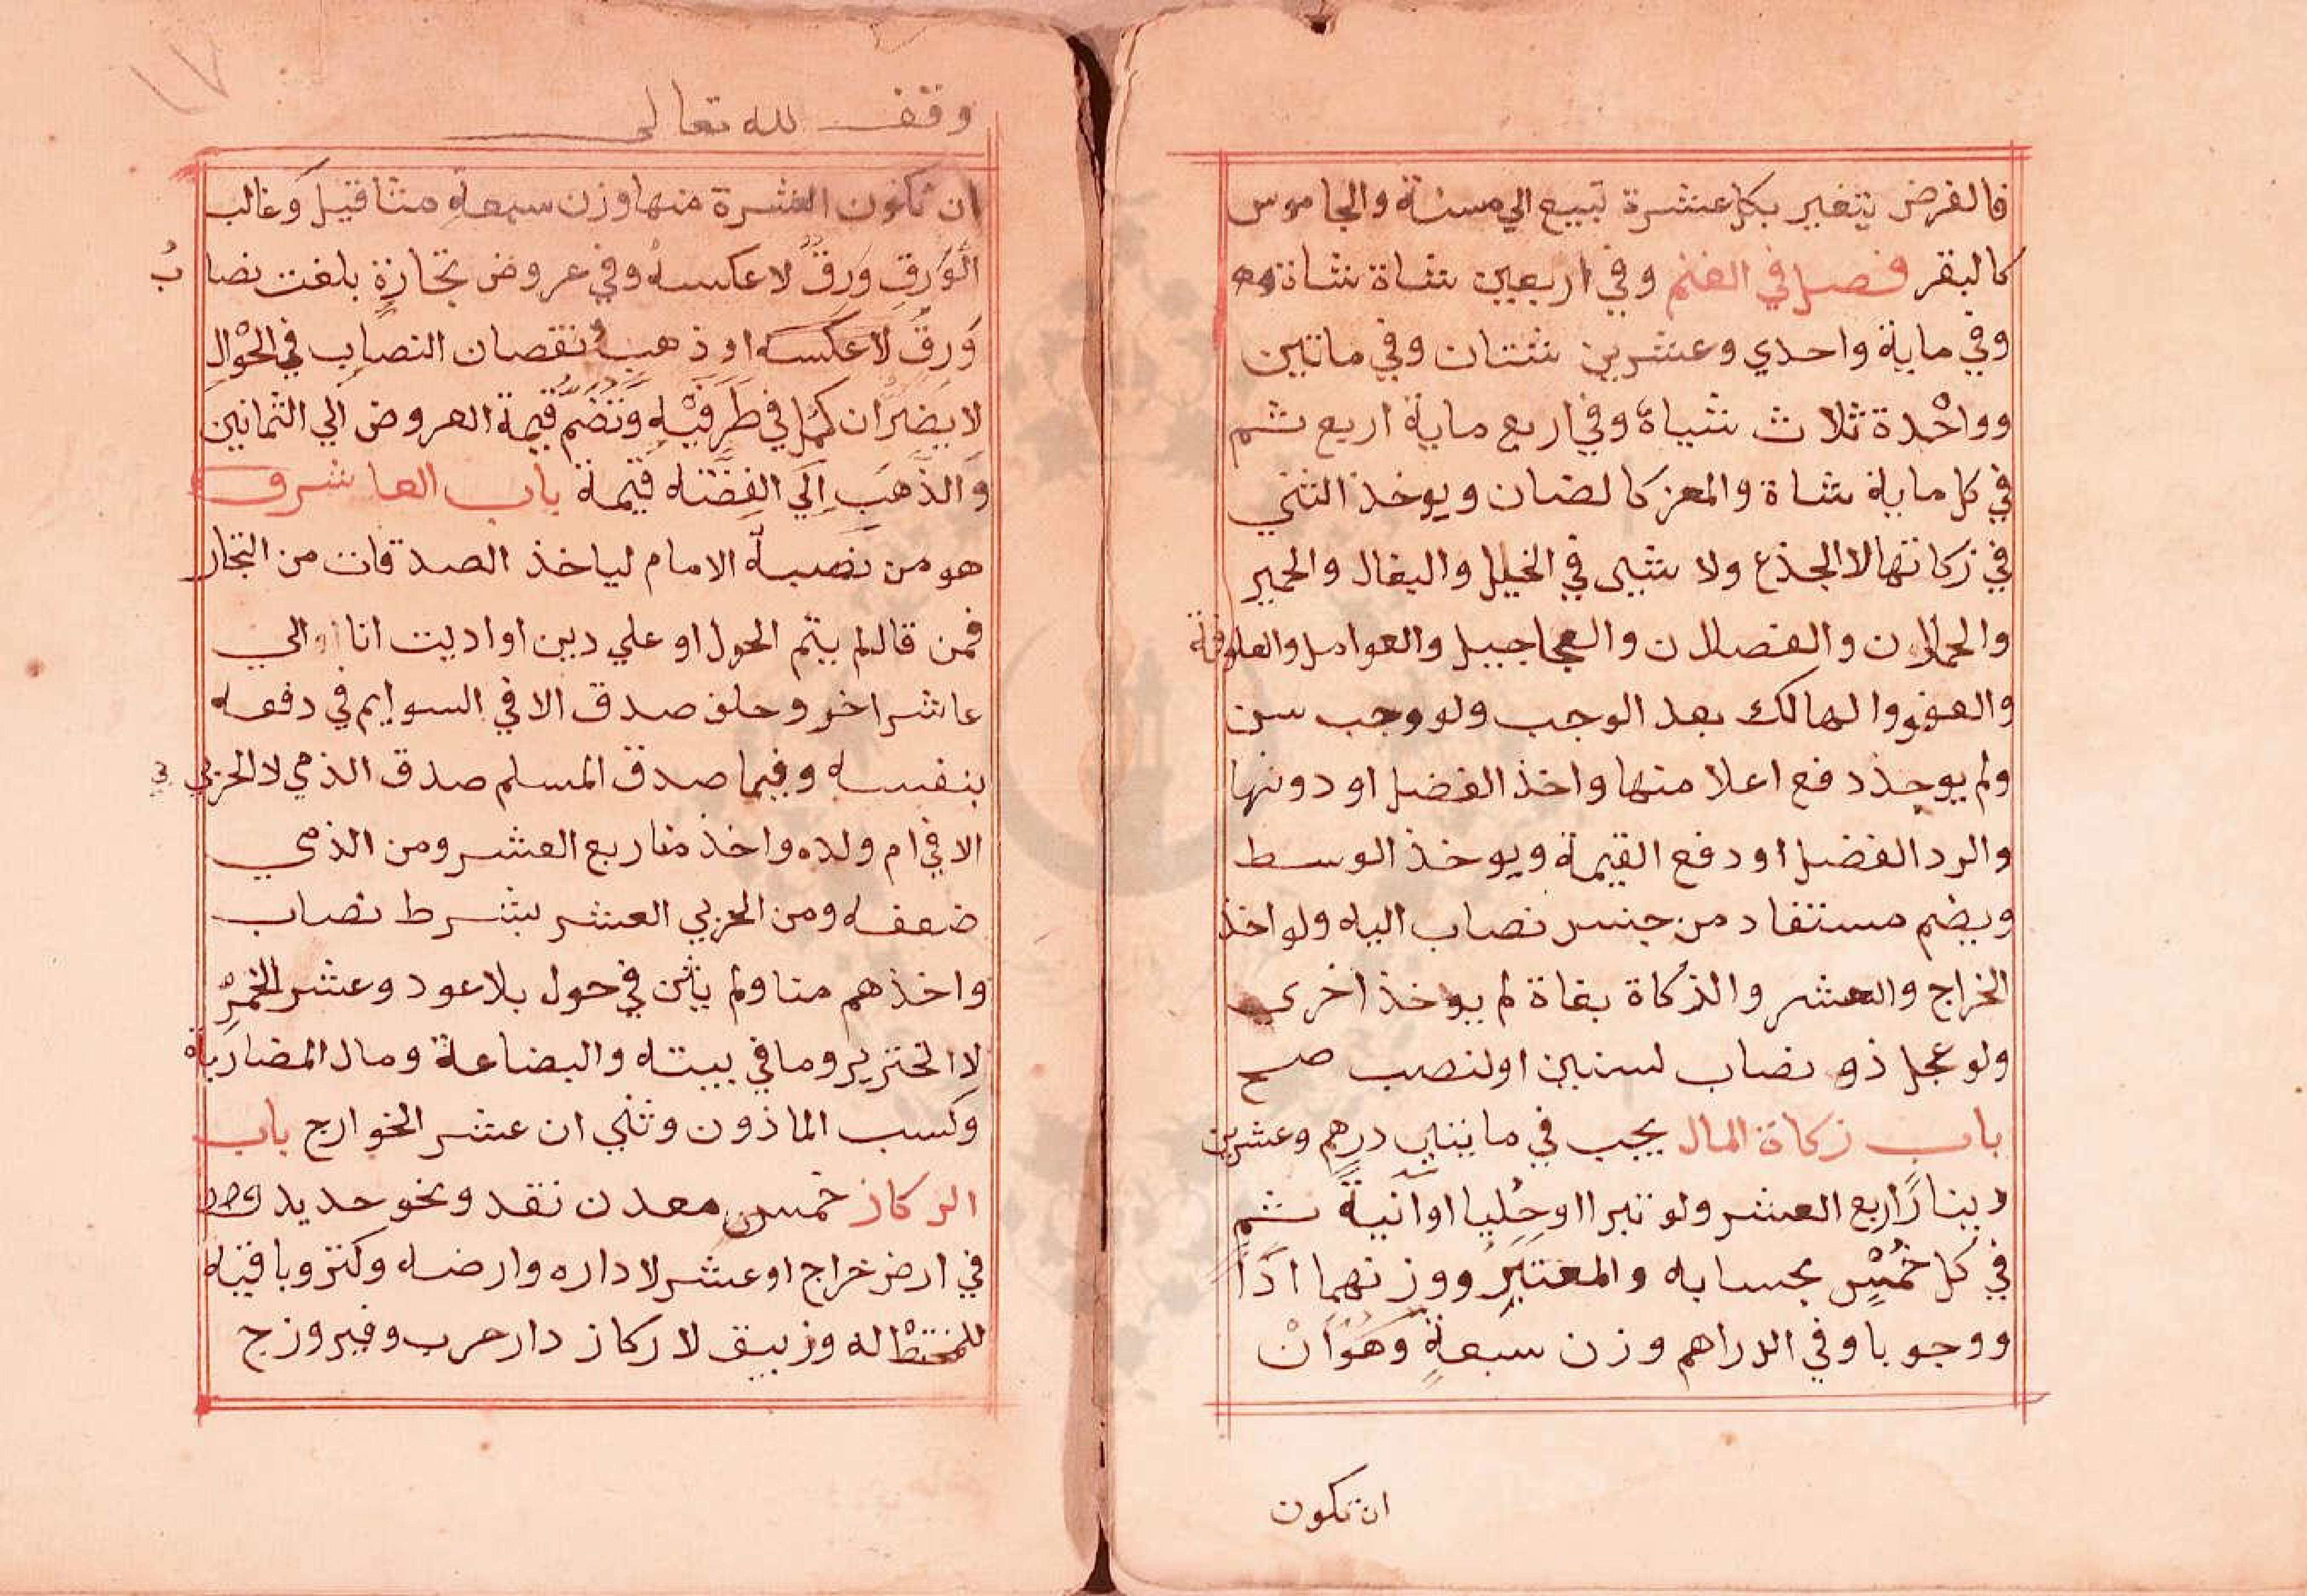 فالفرض يتغير بكل عشرة تبيع الي مسنة والجاموس
كالبقر فصل في الغنم وفي اربعين شاة شاة
وفي ماية واحدي وعشرين شتان وفي ماتين
وواحدة ثلاث شياة وفي اربع ماية اربع شم
في كل ماية شاة والمعز كالضان ويوخذ الثني
في زكاتها لا الجذع ولا شيى في الخيل والبغال والحمير
والحملان والفصلان والعجاجيل والعوامل والعلوفة
والعفو والهالك بعد الوجب ولو وجب سن
ولم يوجد دفع اعلا منها واخذ الفضل او دونها
والرد الفضل او دفع القيمة ويوخذ الوسط
ويضم مستفاد من جنس نصاب اليه ولو اخذ
الخراج والعشر والذكاة بغاة لم يوخذ اخرى
ولو عجل ذو نصاب لسنين او لنصب صح
باب زكاة المال يجب في مايتين درهم وعشرين
دينارًا ربع العشر ولو تبرا او حُلِيا او آنيةً شم
في كل خُمْسٍ بحسابه والمعتبَرُ ووزنهما ادَاً
ووجوبا وفي الدراهم وزن سبعةٍ وَهَوُ اَنْ
ان تكون
١٧
وقف لله تعالى
ان تكون العشرة منها وزن سبعةِ مثاقيل وَغالب
الْوَرِقِ وَرِقٌ لا عكسهُ وفي عروض تجارةٍ بلغت نصابُ
وَرِقٍ لا عكسه او ذهبٍ ونقصان النصابِ في الحْوَالِ
لا يَضِرُ ان كمُل في طَرَفَيْهِ وَتُضَمُ قيمةُ العروض الي الثمانين
وَالذَّهَبَ اِلَي الفِضَّه قيمةً باب العاشر
هو من نصبهُ الامام لياخذ الصدقات من التجار
فمن قال لم يتم الحول او علي دين او اديت انا او الي
عاشر اخر وحلف صدق الا في السوايم في دفعه
بنفسه وفيما صدق المسلم صدق الذمي لا الحربي
الا في ام ولده واخذ منا ربع العشر ومن الذمي
ضعفه ومن الحربي العشر بشرط نصاب
واخذهم منا ولم يثن في حول بلا عود وعشر الخمْرُ
لا الخنزير وما في بيته والبضاعة ومال المضاربة
وكسب الماذون وثني ان عشر الخوارج باب
الركاز خمس معدن نقد ونحو حديد
في ارض خراج او عشر لا داره وارضه وكنز وباقيه
للمختط له وزيبق لا ركاز دار حرب وفيروزج